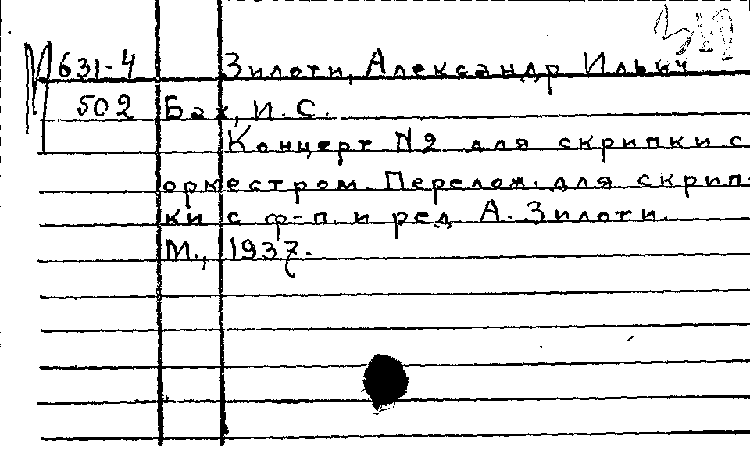 М631-4 Зилоти, Александр Ильич
502 Бах, И. С.
Концерт №2 для скрипки с
оркестром. Перелож. для скрип-
ки с ф-п. и ред. А. Зилоти.
М., 1937.